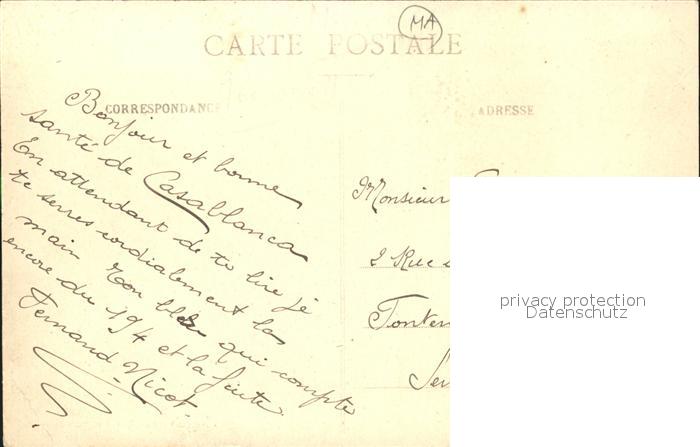 MA
CARTE POSTALE
CORRESPONDANCE
ADRESSE
Bonjour et bonne
santé de Casablanca
En attendant de te lire je
te serres cordialement la
main Ton bleu qui compte
encore du 194 et la fuite
Fernand Nicot
Monsieur
2 Rue
Fonten
privacy protection
Datenschutz